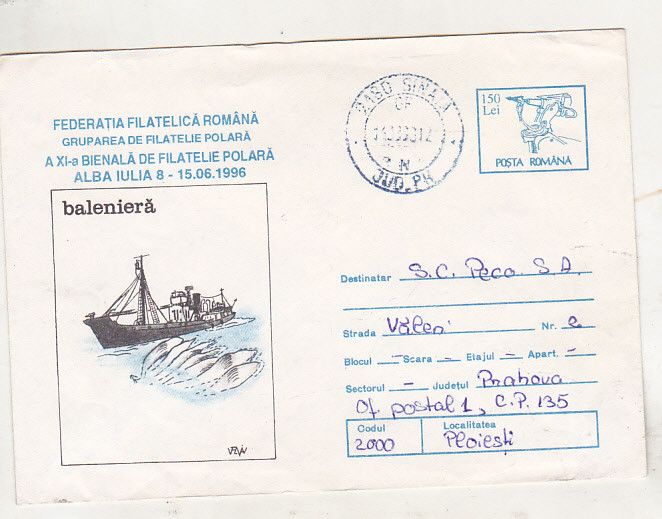 FEDERAȚIA FILATELICĂ ROMÂNĂ
GRUPAREA DE FILATELIE POLARĂ
A XI-a BIENALĂ DE FILATELIE POLARĂ
ALBA IULIA 8 - 15.06.1996
balenieră
2180 SINAIA
OF
JUD. PH
150
Lei
POȘTA ROMÂNĂ
Destinatar S.C. Peco S.A.
Strada Văleni Nr. 2
Blocul – Scara – Etajul – Apart. –
Sectorul – Județul Prahova
Of. postal 1, C.P. 135
Codul
2000
Localitatea
Ploiești